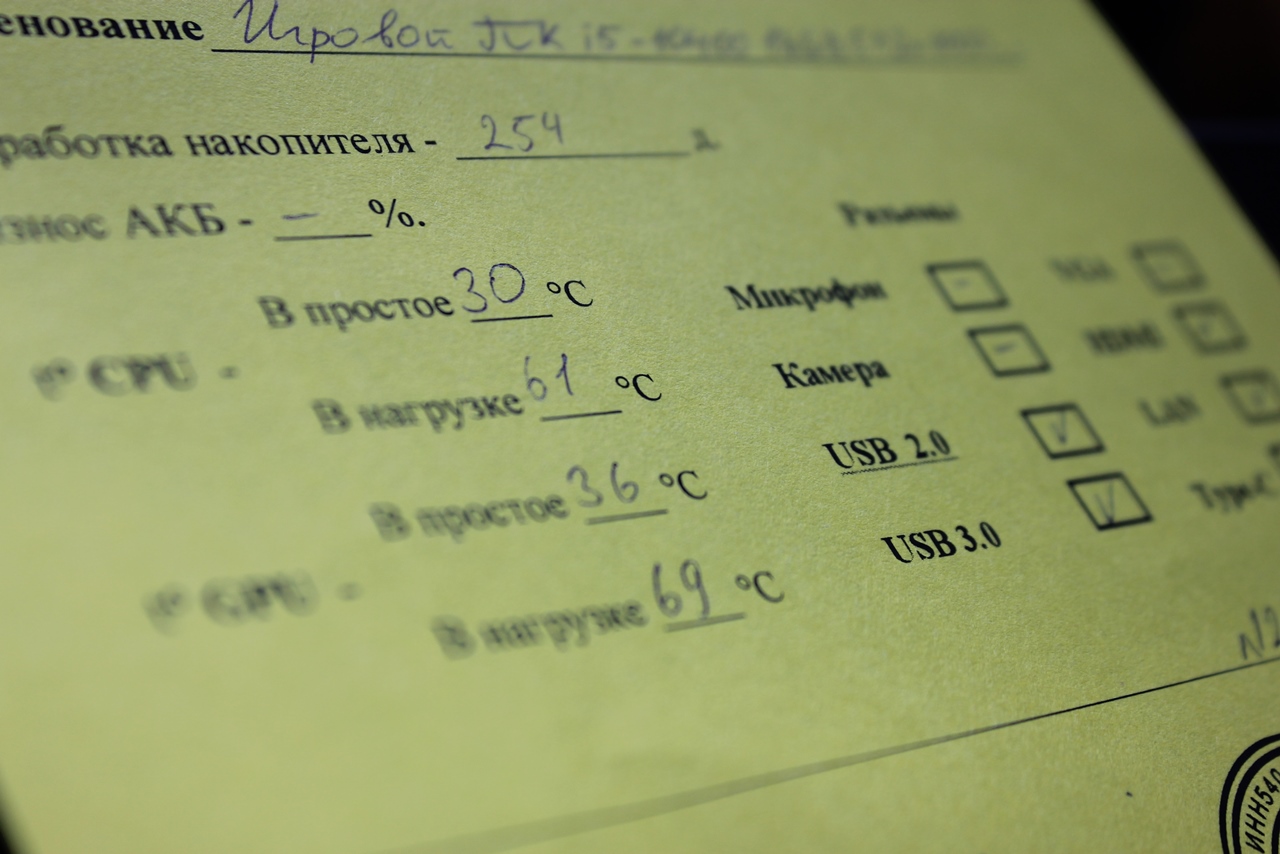 енование Игровой ПК i5-
работка накопителя - 254 д.
знос АКБ - — %.
Разъемы
В простое 30 °C
Микрофон -
t° CPU -
В нагрузке 61 °C
Камера - HDMI
USB 2.0 V LAN
В простое 36 °C
USB 3.0 V Type-C
t° GPU -
В нагрузке 69 °C
ИНН540